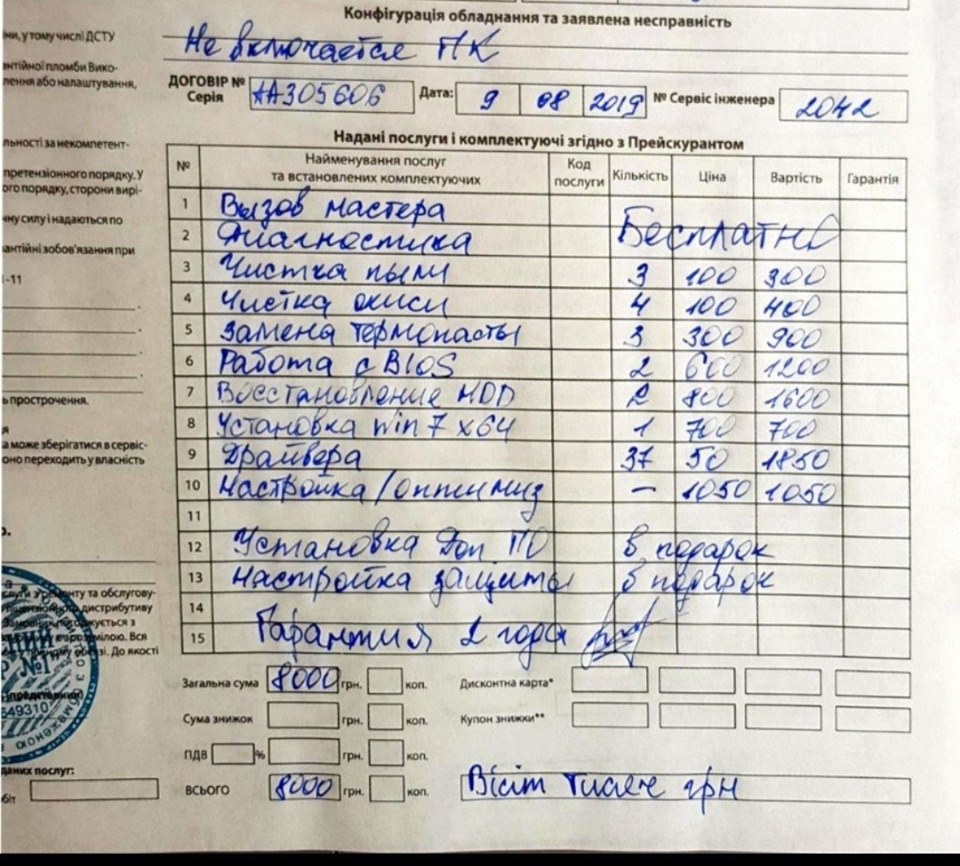 Конфігурація обладнання та заявлена несправність
ни, у тому числі ДСТУ
Не включается ПК
нтійної пломби Вико-
лення або налаштування,
ДОГОВІР № Серія АА305606 Дата: 9 08 2019 № Сервіс інженера 2042
Надані послуги і комплектуючі згідно з Прейскурантом
льності за некомпетент-
претензіонного порядку. У
ого порядку, сторони вирі-
ну силу і надаються по
антійні зобов'язання при
-11
№ Найменування послуг та встановлених комплектуючих Код послуги Кількість Ціна Вартість Гарантія
1 Вызов мастера
2 Диагностика Бесплатно
3 Чистка пыли 3 100 300
4 Чистка окиси 4 100 400
5 Замена термопасты 3 300 900
6 Работа с BIOS 2 600 1200
7 Восстановление HDD 2 800 1600
8 Установка Win 7 x64 1 700 700
9 Драйвера 37 50 1850
10 Настройка/оптимиз — 1050 1050
11
12 Установка Доп ПО в подарок
13 Настройка защиты в подарок
14
15 Гарантия 2 года
ь прострочення.
а може зберігатися в сервіс-
оно переходить у власність
ту та обслугову-
дистрибутиву
Вся
До якості
№1
549310
Загальна сума 8000 грн. коп. Дисконтна карта*
Сума знижок грн. коп. Купон знижки**
ПДВ % грн. коп.
ВСЬОГО 8000 грн. коп. Вісіт тисяч грн
даних послуг:
біт